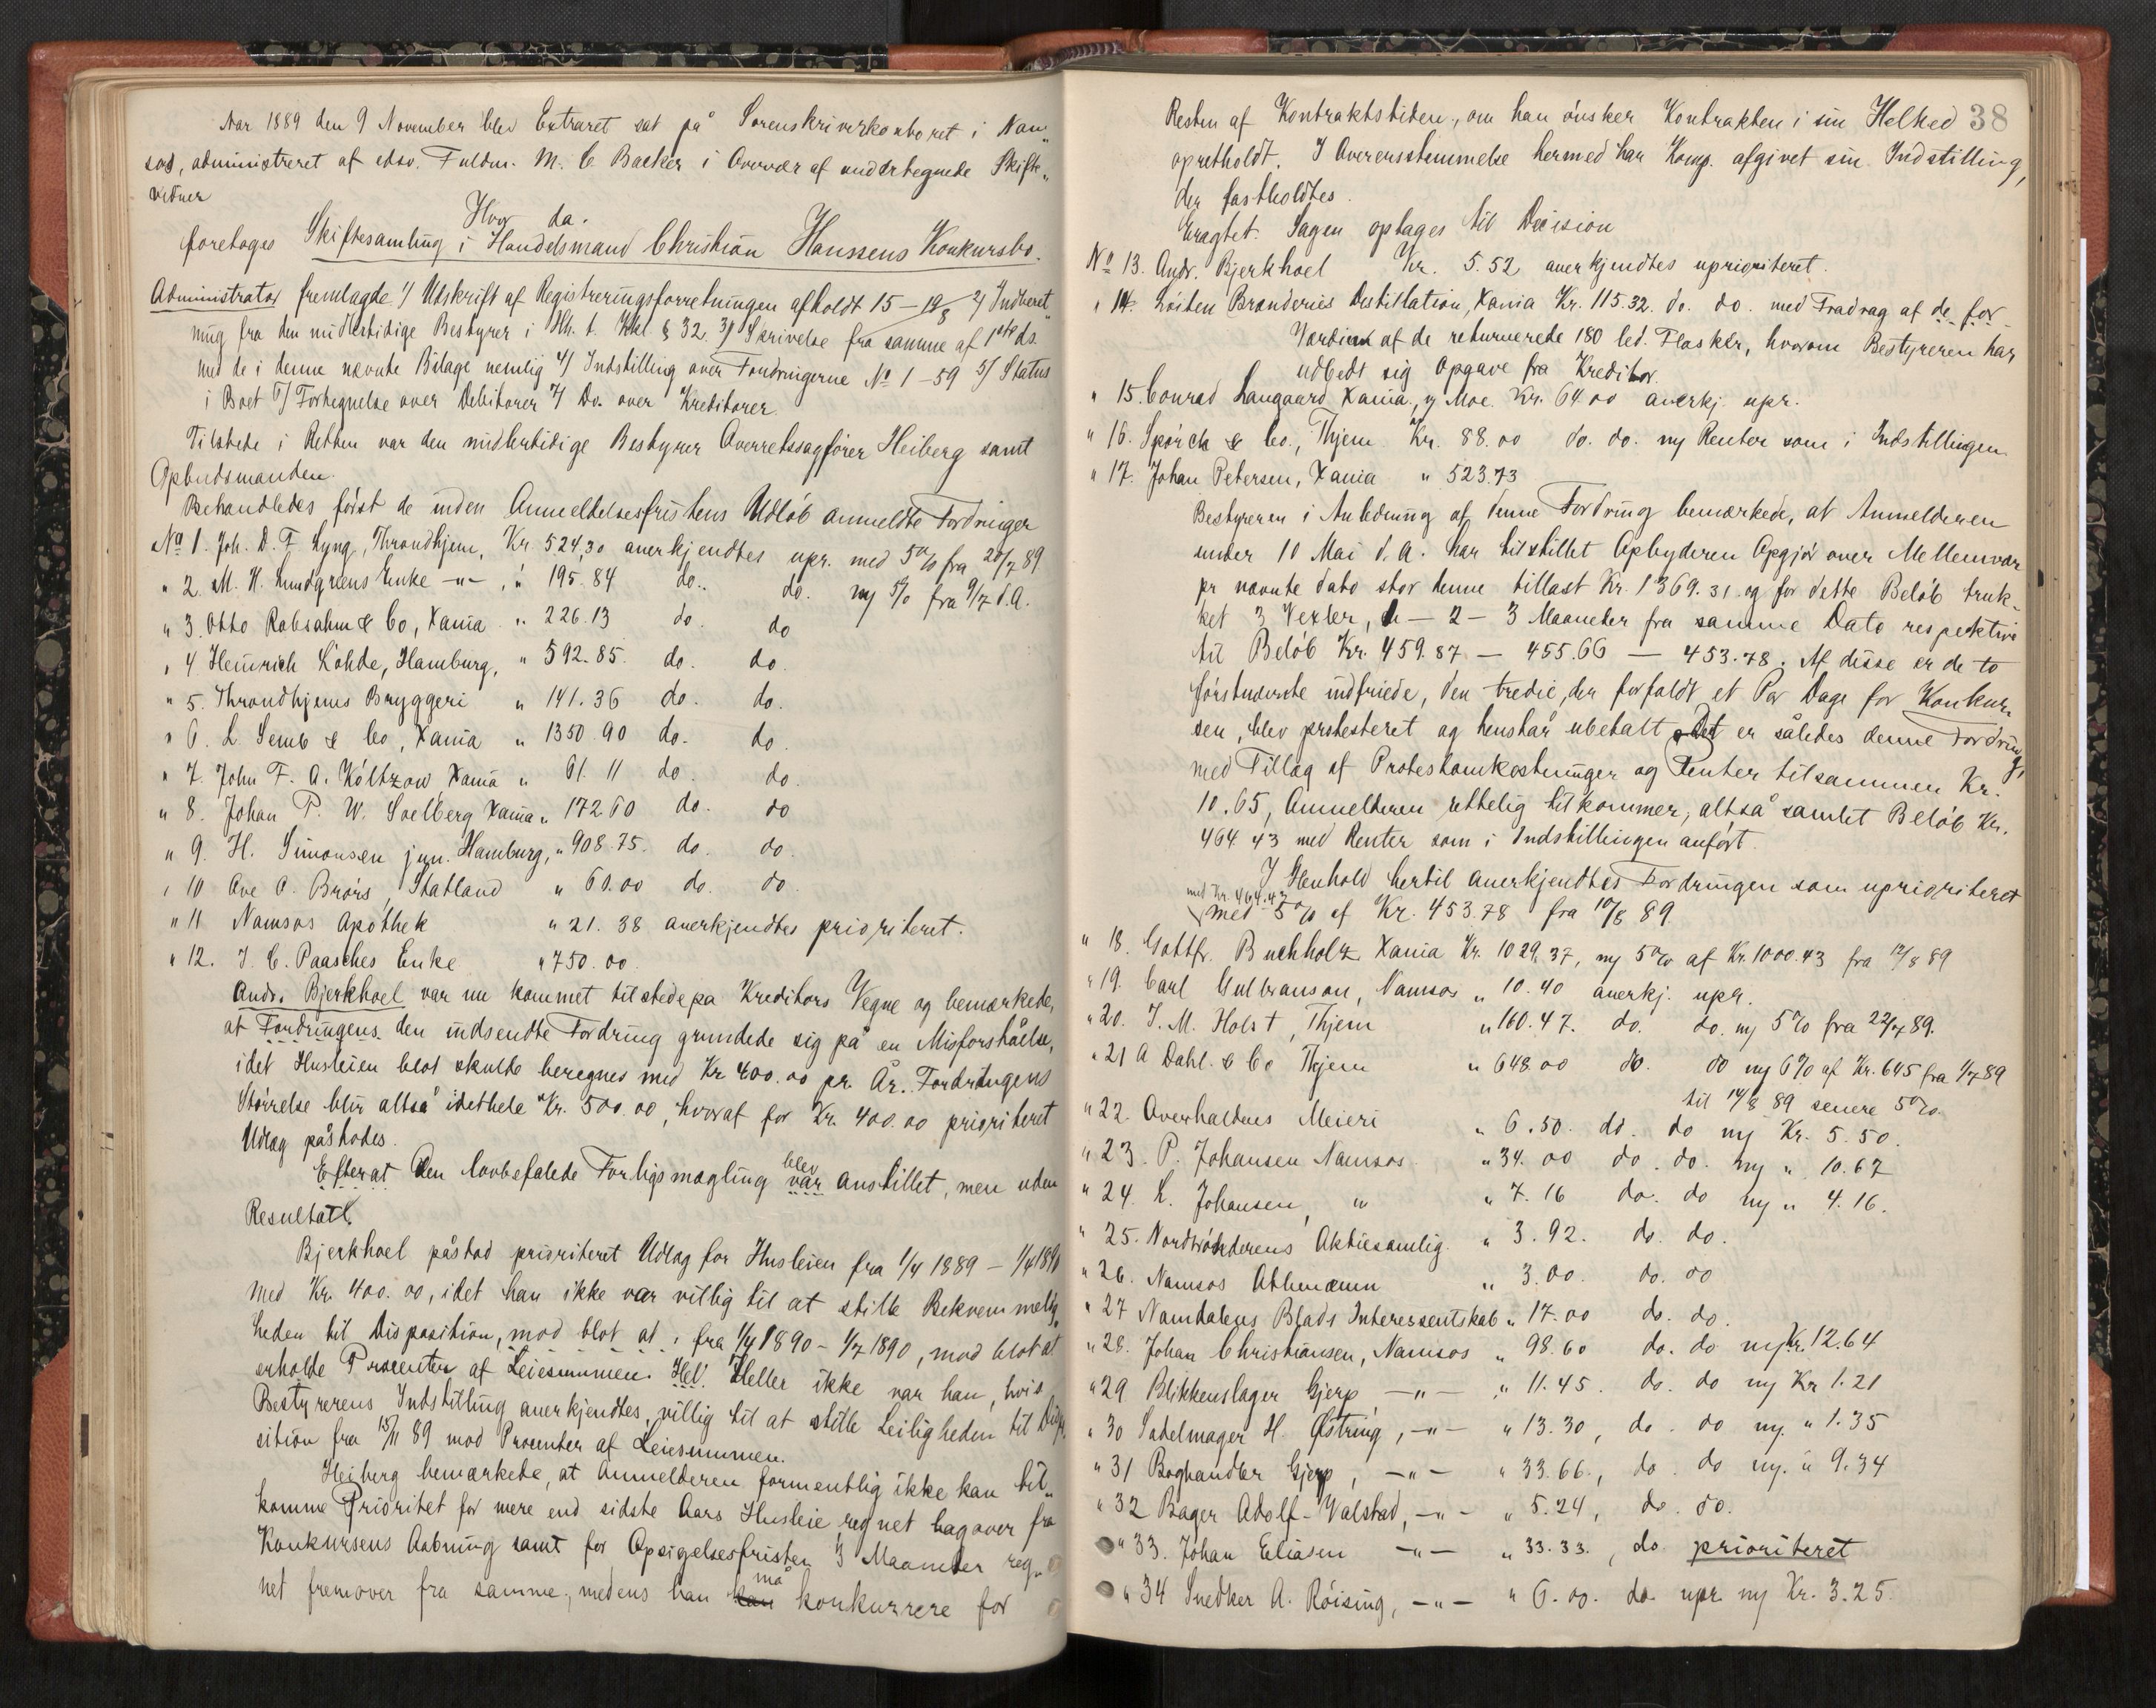 Aar 1889 den 9 November blev Extraret sat på Sorenskriverkontoret i Nam„
sos, administreret af edsv. Fuldm. M. C. Backer i Overvær af undertegnede Skifte„
vidner
Hvor da.
foretoges Skiftesamling i Handelsmand Christian Hanssens Konkursbo.
Administrator fremlagde 1/ Udskrift af Registreringsforretningen afholdt 15 – 19/8 2/ Indberet„
ning fra den midlertidige Bestyrer i Hh. t. Kkl § 32. 3/ Skrivelse fra samme af 1ste ds.
med de i denne nævnte Bilage nemlig 4/ Indstilling over Fordringerne No 1 – 59 5/ Status
i Boet 6/ Fortegnelse over Debitorer 7/ Do. over Kreditorer.
Tilstede i Retten var den midlertidige Bestyrer Overretssagfører Heiberg samt
Opbudsmanden.
Behandledes først de inden Anmeldelsesfristens Udløb anmeldte Fordringer
No 1. Joh. D. F. Lyng, Throndhjem, Kr 524,30 anerkjendtes upr. med 5% fra 20/7 89
" 2. M. H. Lundgrens Enke –"– , " 195.84 do. do. m/ 5% fra 9/7 d.A.
" 3. Otto Robsahm & Co, Xania " 226.13 do. do
" 4 Heinrich Löhde, Hamburg, " 592.85. do. do.
" 5. Throndhjems Bryggeri " 141.36 do. do.
" 6. L. Semb & Co, Xania " 1350.90 do. do.
" 7. John F. A. Költzow Xania " 61.11 do. do.
" 8. Johan P. W. Soelberg Xania " 172.60 do. do
" 9. H. Simonsen jun. Hamburg, " 908.75. do. do.
" 10 Ove A. Brørs, Statland " 60.00 do. do.
" 11 Namsos Apothek " 21.38 anerkjendtes prioriteret.
" 12. J. C. Paasches Enke " 750.00.
Andr. Bjerkhoel var nu kommet tilstede pa Kreditors Vegne og bemærkede,
at Fordringens den indsendte Fordring grundede sig på en Misforståelse,
idet Husleien blot skulde beregnes med Kr 400.00 pr. År. Fordringens
Størrelse blir altså idethele Kr. 500.00, hvoraf for Kr. 400.00 prioriteret
Udlag påstodes.
Efterat Den lovbefalede Forligsmægling var blev anstillet, men uden
Resultatt.
Bjerkhoel påstod prioriteret Udlag for Husleien fra 1/4 1889 – 1/4 1890
med Kr. 400.00, idet han ikke var villig til at stille Bekvemmelig„
heden til Disposition, mod blot at, fra 1/4 1890 – 1/7 1890, mod blot at
erholde Procenter af Leiesummen. Hel. Heller ikke var han, hvis
Bestyrerens Indstilling anerkjendtes, villig til at stille Leiligheden til Dispo
sition fra 15/11 89 mod Procenter af Leiesummen.
Heiberg bemærkede, at Anmelderen formentlig ikke kan til„
komme Prioritet for mere end sidste Aars Husleie regnet bagover fra
Konkursens Aabning samt for Opsigelsesfristen 3 Maaneder reg„
net fremover fra samme, medens han kan må konkurrere for
38
Resten af Kontraktstiden, om han ønsker Kontrakten i sin Helhed
opretholdt. I Overensstemmelse hermed har Komp. afgivet sin Indstilling,
der fastholdtes.
Eragtet. Sagen optages til Decision
No 13. Andr. Bjerkhoel Kr. 5.52 anerkjendtes uprioriteret.
" 14. Løiten Brænderis Destillation, Xania Kr. 115.32. do. do. med Fradrag af de for
Værdien af de returnerede 180 led. Flasker, hvorom Bestyreren har
udbedt sig Opgave fra Kreditor.
" 15. Conrad Langaard Xania, v/ Moe. Kr. 64.00 anerkj. upr.
" 16. Spörck & Co., Thjem Kr. 88.00 do. do. m/ Renter som i Indstillingen
" 17. Johan Petersen, Xania " 523.73
Bestyreren i Anledning af denne Fordring bemærkede, at Anmelderen
under 10 Mai d.A. har tilstillet Opbyderen Opgjør over Mellemvær
pr nævnte dato stor denne tillast Kr. 1369.31 og for dette Beløb truk„
ket 3 Vexler, 1 – 2 – 3 Maaneder fra samme Dato respektive
til Beløb Kr. 459.87 – 455.66 – 453.78. Af disse er de to
førstnævnte indfriede, den tredie, der forfaldt et Par Dage før Konkur„
sen, blev protesteret og henstår ubetalt. Det er således denne Fordring,
med Tillæg af Protestomkostninger og Renter tilsammen Kr.
10.65, Anmelderen rettelig tilkommer, altså samlet Beløb Kr.
464 43 med Renter som i Indstillingen anført.
I Henhold hertil anerkjendtes Fordringen som uprioriteret
med Kr. 464.43
med 5% af Kr. 453.78 fra 10/8 89.
" 18. Gottfr. Buchholz, Xania Kr. 1029.37, m/ 5% af Kr. 1000.43 fra 12/8 89
" 19. Carl Gulbranson, Namsos " 10.40 anerkj. upr.
" 20. J. M. Holst, Thjem " 160.47. do. do. m/ 5% fra 22/7 89.
" 21 A Dahl & Co Thjem " 648.00 do. do m/ 6% af Kr. 645 fra 1/7 89
til 14/8 89 senere 5%.
" 22. Overhaldens Meieri " 6.50. do. do m/ Kr. 5.50.
" 23. P. Johansen Namsos " 34.00 do. do. m/ " 10.67
" 24. L. Johansen, " " 7.16 do. do m/ " 4.16.
" 25. Nordtrönderens Aktiesamlig. " 3.92. do. do.
" 26. Namsos Athenæum " 3.00. do. do
" 27 Namdalens Blads Interessentskab " 17.00 do. do.
" 28. Johan Christiansen, Namsos " 98.60 do. do m/ Kr. 12.64
" 29 Blikkenslager Gjerp, –"– " 11.45. do. do m/ Kr 1.21
" 30 Sadelmager H. Østring, –"– " 13.30, do. do m/ " 1.35
" 31 Boghandler Gjerp, –"– " 33.66, do. do m/. " 9.34
" 32 Bager Adolf Valstad, –"– " 5.24, do. do.
" 33. Johan Eliasen –"– " 33.33., do. prioriteret
" 34 Snedker A. Röising, –"– " 6.00. do. upr. m/ Kr. 3.25.